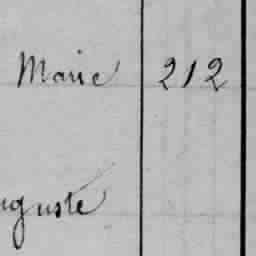 Marie 212
uguste